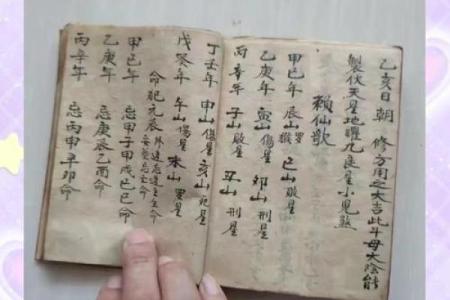 乙亥日朝 修方用之大吉此年母大陰能
製伏天星地曜九良星小兒煞
賴仙歌
甲巳年 辰山 羅 巳山 殺星
乙庚年 寅山 傷星 卯山 刑星
丙辛年 子山 殺星 丑山 刑星
丁壬年 申山 傷星 亥山
戊癸年 午山 傷星 未山 星
命犯元辰
甲巳年 忌甲子甲戌巳巳命
乙庚年 忌庚辰乙酉命
丙辛年 忌丙申辛卯命